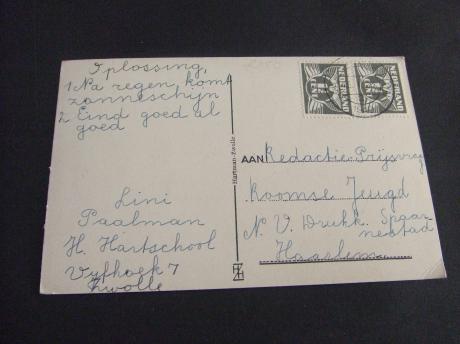 Oplossing,
1 Na regen komt
zonneschijn
2 Eind goed al
goed
Lini
Paalman
H. Hartschool
Vyfhoek 7
Zwolle
Hartman-Zwolle
NEDERLAND
NEDERLAND
AAN Redactie Prijsvrg
Roomse Jeugd
N.V. Drukk. Spaar
nestad
Haarlem